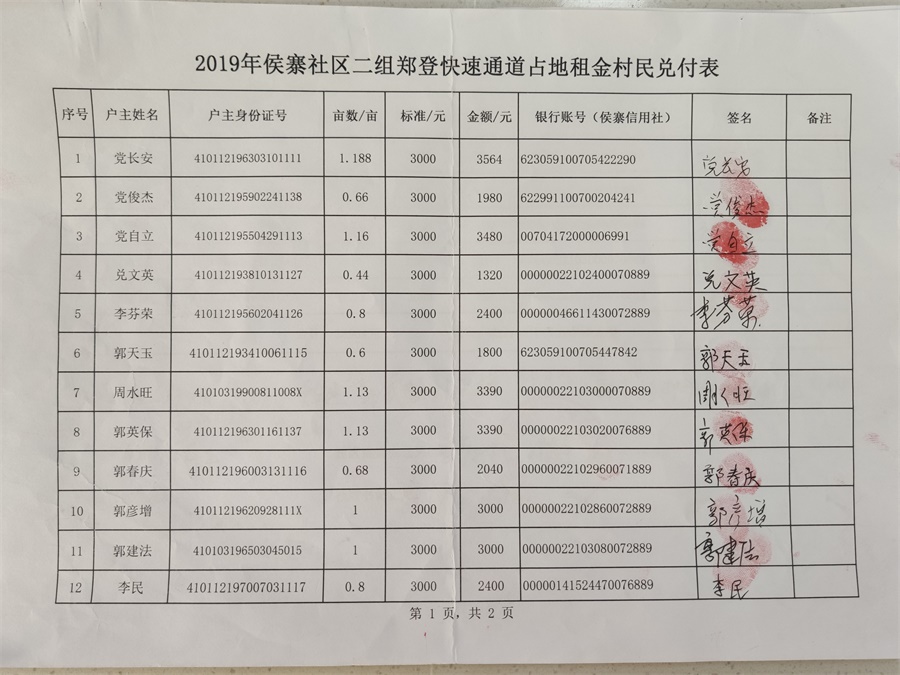 2019年侯寨社区二组郑登快速通道占地租金村民兑付表
序号 户主姓名 户主身份证号 亩数/亩 标准/元 金额/元 银行账号（侯寨信用社） 签名 备注
1 党长安 410112196303101111 1.188 3000 3564 623059100705422290 党长安
2 党俊杰 410112195902241138 0.66 3000 1980 622991100700204241 党俊杰
3 党自立 410112195504291113 1.16 3000 3480 00704172000006991 党自立
4 兑文英 410112193810131127 0.44 3000 1320 00000022102400070889 兑文英
5 李芬荣 410112195602041126 0.8 3000 2400 00000046611430072889 李芬荣
6 郭天玉 410112193410061115 0.6 3000 1800 623059100705447842 郭天玉
7 周水旺 41010319900811008X 1.13 3000 3390 00000022103000070889 周水旺
8 郭英保 410112196301161137 1.13 3000 3390 00000022103020076889 郭英保
9 郭春庆 410112196003131116 0.68 3000 2040 00000022102960071889 郭春庆
10 郭彦增 41011219620928111X 1 3000 3000 00000022102860072889 郭彦增
11 郭建法 410103196503045015 1 3000 3000 00000022103080072889 郭建法
12 李民 410112197007031117 0.8 3000 2400 00000141524470076889 李民
第 1 页，共 2 页